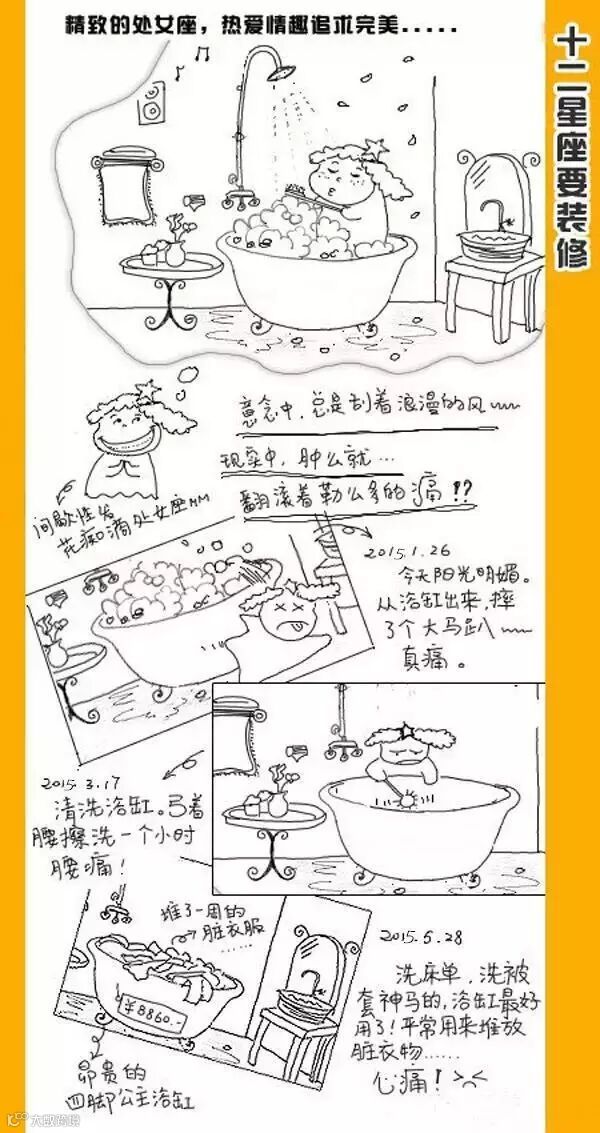 精致的处女座，热爱情趣追求完美.....
十二星座要装修
意念中，总是刮着浪漫的风~~
现实中，肿么就...
翻滚着勒么多的痛!?
间歇性发
花痴滴处女座MM
2015.1.26
今天阳光明媚。
从浴缸出来，摔
了个大马趴~~
真痛。
2015.3.17
清洗浴缸。弓着
腰擦洗一个小时
腰痛!
堆了一周的
脏衣服
......
¥8860.-
昂贵的
四脚公主浴缸
2015.5.28
洗床单，洗被
套神马的，浴缸最好
用了!平常用来堆放
脏衣物......
心痛!
大数跨境